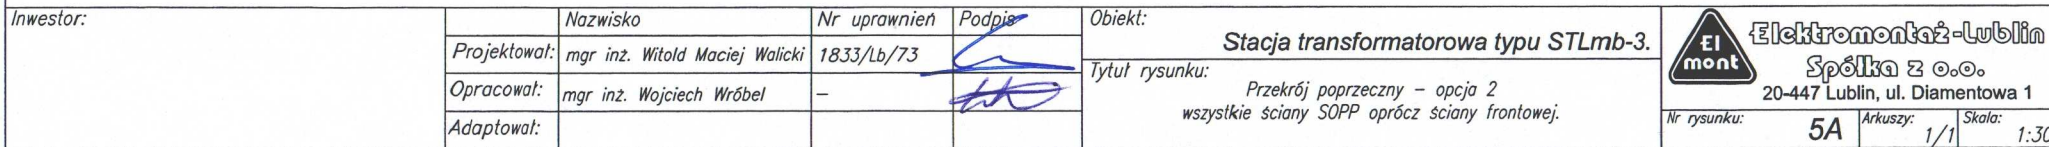 Inwestor:
Nazwisko
Nr uprawnień
Podpis
Projektował:
mgr inż. Witold Maciej Walicki
1833/Lb/73
Opracował:
mgr inż. Wojciech Wróbel
–
Adaptował:
Obiekt:
Stacja transformatorowa typu STLmb-3.
Tytuł rysunku:
Przekrój poprzeczny – opcja 2
wszystkie ściany SOPP oprócz ściany frontowej.
El
mont
Elektromontaż-Lublin
Spółka z o.o.
20-447 Lublin, ul. Diamentowa 1
Nr rysunku:
5A
Arkuszy:
1/1
Skala:
1:30